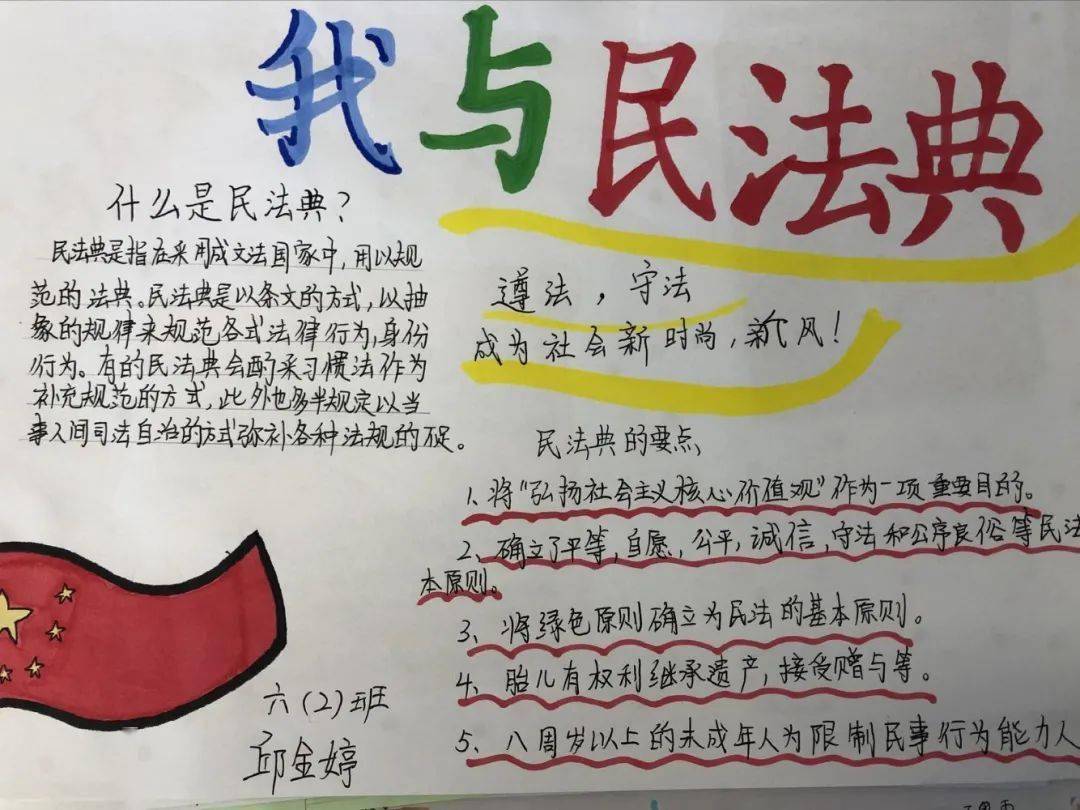 我与民法典
什么是民法典?
民法典是指在采用成文法国家中,用以规
范的法典。民法典是以条文的方式,以抽
象的规律来规范各式法律行为,身份
行为。有的民法典会酌采习惯法作为
补充规范的方式,此外也多半规定以当
事人间司法自治的方式弥补各种法规的不足。
遵法,守法
成为社会新时尚,新风!
民法典的要点
1、将“弘扬社会主义核心价值观”作为一项重要目的。
2、确立了平等,自愿,公平,诚信,守法和公序良俗等民法
本原则。
3、将绿色原则确立为民法的基本原则。
4、胎儿有权利继承遗产,接受赠与等。
5、八周岁以上的未成年人为限制民事行为能力人
六(2)班
邱金婷